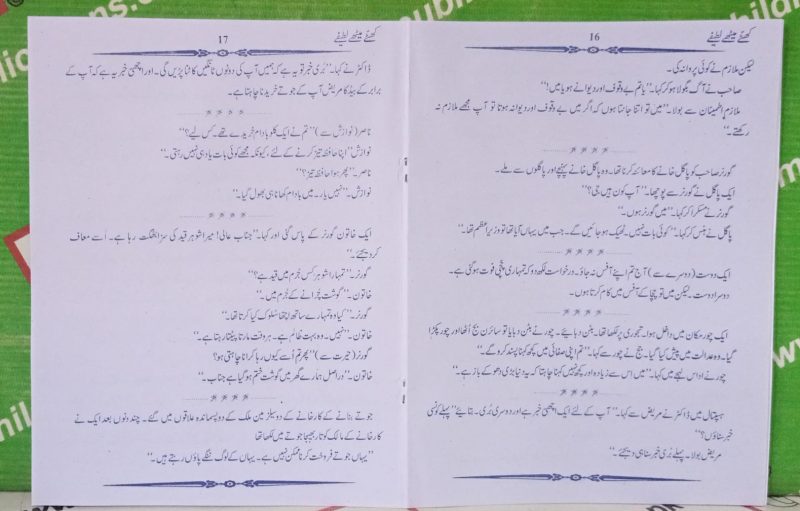 کھٹے میٹھے لطیفے
16
لیکن ملازم نے کوئی پروا نہ کی۔
صاحب نے آگ بگولا ہو کر کہا۔ ”یا تم بے وقوف اور دیوانے ہو یا میں!“
ملازم اطمینان سے بولا۔ ”میں تو اتنا جانتا ہوں کہ اگر میں بے وقوف اور دیوانہ ہوتا تو آپ مجھے ملازم نہ
رکھتے۔“
گورنر صاحب کو پاگل خانے کا معائنہ کرنا تھا۔ وہ پاگل خانے پہنچے اور پاگلوں سے ملے۔
ایک پاگل نے گورنر سے پوچھا۔ ”آپ کون ہیں جی؟“
گورنر نے مسکرا کر کہا۔ ”میں گورنر ہوں۔“
پاگل نے ہنس کر کہا۔ ”کوئی بات نہیں۔ ٹھیک ہو جائیں گے۔ جب میں یہاں آیا تھا تو وزیراعظم تھا۔“
ایک دوست (دوسرے سے) آج تم اپنے آفس نہ جاؤ۔ درخواست لکھ دو کہ تمہاری چچی فوت ہو گئی ہے۔
دوسرا دوست۔ لیکن میں تو چچا کے آفس میں کام کرتا ہوں۔
ایک چور مکان میں داخل ہوا۔ تجوری پر لکھا تھا۔ بٹن دبائیے۔ چور نے بٹن دبایا تو سائرن بج اُٹھا اور چور پکڑا
گیا۔ وہ عدالت میں پیش کیا گیا۔ جج نے چور سے کہا۔ ”تم اپنی صفائی میں کچھ کہنا پسند کرو گے۔“
چور نے اداس لہجے میں کہا۔ ”میں اس سے زیادہ اور کچھ نہیں کہنا چاہتا کہ یہ دنیا بڑی دھوکے باز ہے۔“
ہسپتال میں ڈاکٹر نے مریض سے کہا۔ ”آپ کے لئے ایک اچھی خبر ہے اور دوسری بُری۔ بتائیے پہلے کونسی
خبر سناؤں؟“
مریض بولا۔ پہلے بُری خبر سنا ہی دیجئے۔“
کھٹے میٹھے لطیفے
17
ڈاکٹر نے کہا۔ ”بُری خبر تو یہ ہے کہ ہمیں آپ کی دونوں ٹانگیں کاٹنا پڑیں گی۔ اور اچھی خبر یہ ہے کہ آپ کے
برابر کے بیڈ کا مریض آپ کے جوتے خریدنا چاہتا ہے۔
ناصر (نوازش سے) ”تم نے ایک کلو بادام خریدے تھے۔ کس لیے؟“
نوازش ”اپنا حافظہ تیز کرنے کے لئے، کیونکہ مجھے کوئی بات یاد ہی نہیں رہتی۔“
ناصر۔ ”پھر ہوا حافظہ تیز؟“
نوازش۔ ”نہیں یار۔ میں بادام کھانا ہی بھول گیا۔“
ایک خاتون گورنر کے پاس گئی اور کہا۔ ”جناب عالی! میرا شوہر قید کی سزا بھگت رہا ہے۔ اُسے معاف
کر دیجئے۔“
گورنر۔ ”تمہارا شوہر کس جُرم میں قید ہے؟“
خاتون۔ ”گوشت چُرانے کے جُرم میں۔“
گورنر۔ ”کیا وہ تمہارے ساتھ اچھا سُلوک کیا کرتا تھا۔“
خاتون۔ ”نہیں۔ وہ بہت ظالم ہے۔ ہر وقت مارتا پیٹتا رہتا ہے۔“
گورنر (حیرت سے) ”پھر تم اُسے کیوں رہا کرانا چاہتی ہو؟
خاتون۔ ”دراصل ہمارے گھر میں گوشت ختم ہو گیا ہے جناب۔“
جوتے بنانے کے کارخانے کے دو سیلز مین ملک کے دو پسماندہ علاقوں میں گئے۔ چند دنوں بعد ایک نے
کارخانے کے مالک کو تار بھیجا جو تے میں لکھا تھا
”یہاں جوتے فروخت کرنا ممکن نہیں ہے۔ یہاں کے لوگ ننگے پاؤں رہتے ہیں۔“